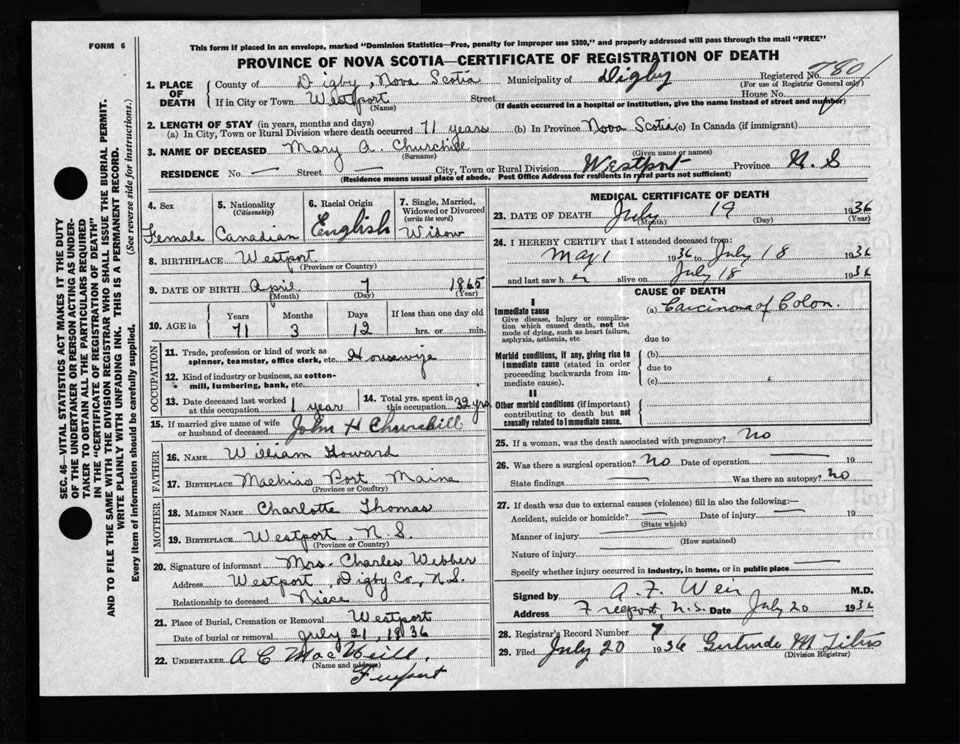 FORM 6
This form if placed in an envelope, marked "Dominion Statistics—Free, penalty for improper use $300," and properly addressed will pass through the mail "FREE"
PROVINCE OF NOVA SCOTIA—CERTIFICATE OF REGISTRATION OF DEATH
SEC. 46—VITAL STATISTICS ACT MAKES IT THE DUTY
OF THE UNDERTAKER OR PERSON ACTING AS UNDER-
TAKER TO OBTAIN ALL THE PARTICULARS REQUIRED
IN THE "CERTIFICATE OF REGISTRATION OF DEATH"
AND TO FILE THE SAME WITH THE DIVISION REGISTRAR WHO SHALL ISSUE THE BURIAL PERMIT.
WRITE PLAINLY WITH UNFADING INK. THIS IS A PERMANENT RECORD.
Every item of information should be carefully supplied. (See reverse side for instructions.)
1. PLACE OF DEATH
County of Digby, Nova Scotia Municipality of Digby Registered No. 780
(For use of Registrar General only)
If in City or Town Westport Street House No.
(Name) (If death occurred in a hospital or institution, give the name instead of street and number)
2. LENGTH OF STAY (in years, months and days)
(a) In City, Town or Rural Division where death occurred 71 years (b) In Province Nova Scotia (c) In Canada (if immigrant)
3. NAME OF DECEASED Mary A. Churchill
(Surname) (Given name or names)
RESIDENCE No. — Street — City, Town or Rural Division Westport Province N. S
(Residence means usual place of abode. Post Office Address for residents in rural parts not sufficient)
4. Sex Female
5. Nationality (Citizenship) Canadian
6. Racial Origin English
7. Single, Married, Widowed or Divorced (write the word) Widow
8. BIRTHPLACE Westport
(Province or Country)
9. DATE OF BIRTH April 7 1865
(Month) (Day) (Year)
10. AGE in Years Months Days If less than one day old
71 3 12 hrs. or min.
OCCUPATION
11. Trade, profession or kind of work as spinner, teamster, office clerk, etc. Housewife
12. Kind of industry or business, as cotton-mill, lumbering, bank, etc.
13. Date deceased last worked at this occupation 1 year
14. Total yrs. spent in this occupation 32 yrs.
15. If married give name of wife or husband of deceased John H Churchill
FATHER
16. NAME William Howard
17. BIRTHPLACE Machias Port Maine
(Province or Country)
MOTHER
18. MAIDEN NAME Charlotte Thomas
19. BIRTHPLACE Westport, N. S.
(Province or Country)
20. Signature of informant Mrs. Charles Webber
Address Westport, Digby Co., N.S.
Relationship to deceased Niece
21. Place of Burial, Cremation or Removal Westport
Date of burial or removal July 21, 1936
22. UNDERTAKER A C MacNeill,
(Name and address)
Freeport
MEDICAL CERTIFICATE OF DEATH
23. DATE OF DEATH July 19 1936
(Month) (Day) (Year)
24. I HEREBY CERTIFY that I attended deceased from:
May 1 1936 to July 18
and last saw her alive on July 18 1936
CAUSE OF DEATH
I
Immediate cause
Give disease, injury or complication which caused death, not the mode of dying, such as heart failure, asphyxia, asthenia, etc
(a) Carcinoma of Colon.
due to
Morbid conditions, if any, giving rise to immediate cause (stated in order proceeding backwards from immediate cause).
(b)
due to
(c)
II
Other morbid conditions (if important) contributing to death but not causally related to immediate cause.
25. If a woman, was the death associated with pregnancy? no
26. Was there a surgical operation? no Date of operation — 19
State findings — Was there an autopsy? no
27. If death was due to external causes (violence) fill in also the following:—
Accident, suicide or homicide? — Date of injury — 19
(State which)
Manner of injury
(How sustained)
Nature of injury
Specify whether injury occurred in industry, in home, or in public place —
Signed by A. F. Weir M.D.
Address Freeport, N.S. Date July 20 1936
28. Registrar's Record Number 7
29. Filed July 20 1936 Gertrude M
(Division Registrar)